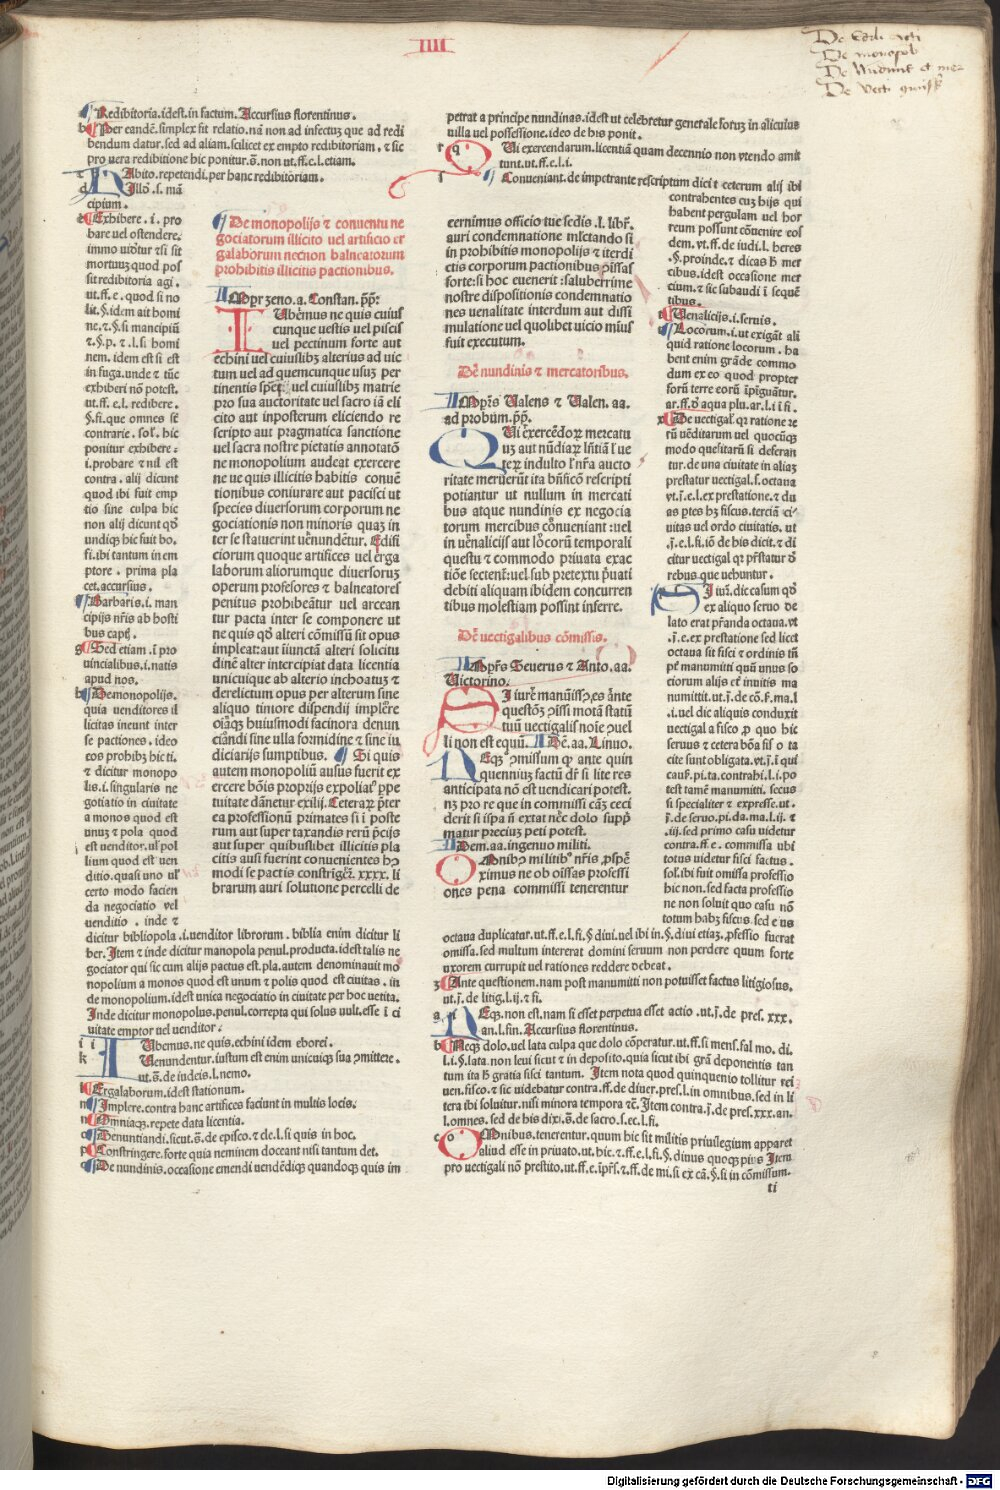 IIII
De monopol
Redibitoria.idest.in factum. Accursius florentinus.
Per eandē.simplex fit relatio.nā non ad infectuȝ que ad redi
bendum datur.sed ad aliam.scilicet ex empto redibitoriam.⁊ sic
pro vera redibitione hic ponitur.ō.non ut.ff.e.l.etiam.
Abito.repetendi.per hanc redibitoriam.
Illō.s.mā
cipium.
Exhibere.i.pro
bare uel ostendere.
immo uiōtur ⁊si sit
mortuuȝ quod pos
sit redibitoria agi.
ut.ff.e.quod si no
lit.§.idem ait homi
ne.⁊.§.si mancipiū
⁊.§.p.⁊.l.si homi
nem.idem est si est
in fuga.unde ⁊ tūc
exhiberi nō potest.
ut.ff.e.l.redibere.
§.fi.que omnes sē
contrarie.sol.hic
ponitur exhibere:
i.probare ⁊ nil est
contra.alij dicunt
quod ibi fuit emp
tio sine culpa hic
non alij dicunt qō
undiqȝ hic fuit bo.
fi.ibi tantum in em
ptore.prima pla
cet.accursius.
Barbaris.i.man
cipijs nr̄is ab hosti
bus capt.
Sed etiam.i.pro
uincialibus.i.natis
apud nos.
De monopolijs.
quia uenditores il
licitas ineunt inter
se pactiones.ideo
eos prohibȝ hic ti.
⁊ dicitur monopo
lis.i.singularis ne
gotiatio in ciuitate
a monos quod est
unuȝ ⁊ pola quod
est uenditor.ul'pol
lium quod est uen
ditio.quasi uno ul'
certo modo facien
da negociatio vel
uenditio.inde ⁊
dicitur bibliopola.i.uenditor librorum.biblia enim dicitur li
ber.Item ⁊ inde dicitur manopola penul.producta.idest talis ne
gociator qui sic cum alijs pactus est.pla.autem denominauit mo
nopolium a monos quod est unum ⁊ polis quod est ciuitas.in
de monopolium.idest unica negociatio in ciuitate per hoc uetita.
Inde dicitur monopolus.penul.correpta qui solus uult.esse ī ci
uitate emptor uel uenditor.
Ubemus.ne quis.echini idem eborei.
Uenundentur.iustum est enim unicuiqȝ sua ꝯmittere.
ut.ō.de iudeis.l.nemo.
Ergalaborum.idest stationum.
Implere.contra hanc artifices faciunt in multis locis.
Omniaqȝ.repete data licentia.
Denuntiandi.sicut.ō.de episco.⁊ de.l.si quis in hoc.
Constringere.forte quia neminem doceant nisi tantum det.
De nundinis.occasione emendi uendēdiqȝ quandoqȝ quis im
De monopolijs ⁊ conuentu ne
gociatorum illicito uel artificio er
galaborum necnon balneatorum
prohibitis illicitis pactionibus.
Imp̄r zeno.a.Constan.pp̄:
Ubēmus ne quis cuius
cunque uestis uel piscis
vel pectinum forte aut
echini uel cuiuslibȝ alterius ad uic
tum uel ad quemcunque usuȝ per
tinentis spēi uel cuiuslibȝ matrie
pro sua auctoritate uel sacro iā eli
cito aut inposterum eliciendo re
scripto aut pragmatica sanctione
uel sacra nostre pietatis annotatō
ne monopolium audeat exercere
ne ue quis illicitis habitis conuē
tionibus coniurare aut pacisci ut
species diuersorum corporum ne
gociationis non minoris quaȝ in
ter se statuerint uēnundētur. Edifi
ciorum quoque artifices uel erga
laborum aliorumque diuersoruȝ
operum professores ⁊ balneatores
penitus prohibeātur uel arcean
tur pacta inter se componere ut
ne quis qō alteri cōmissū sit opus
impleat:aut iīunctā alteri solicitu
dinē alter intercipiat data licentia
unicuique ab alterio inchoatuȝ ⁊
derelictum opus per alterum sine
aliquo timore dispendij implēre
oīaqȝ huiusmodi facinora denun
ciādi sine ulla formidine ⁊ sine iu
diciarijs sumptibus. Si quis
autem monopoliū ausus fuerit ex
ercere bōis proprijs expoliat' ppe
tuitate dānetur exilij. Ceteraꝝ p̄ter
ea professionū primates si ī poste
rum aut super taxandis rerū p̄cijs
aut super quibuslibet illicitis pla
citis ausi fuerint conuenientes hꝰ
modi se pactis constrīgēr. xxxx. li
brarum auri solutione percelli de
petrat a principe nundinas.idest ut celebretur generale foruȝ in aliculus
uilla uel possessione.ideo de his ponit.
Ui exercendarum.licentiā quam decennio non vtendo amit
tunt.ut.ff.e.l.i.
Conueniant.de impetrante rescriptum dicit ceterum alij ibi
cernimus officio tue sedis.l. libr.
auri condemnatione mlctando si
in prohibitis monopolijs ⁊ iterdi
ctis corporum pactionibus ꝯissas
forte:si hoc euenerit:saluberrime
nostre dispositionis condemnatio
nes uenalitate interdum aut dissi
mulatione uel quolibet uicio mius
fuit executum.
De nundinis ⁊ mercatoribus.
Imp̄rs Valens ⁊ Valen. aa.
ad probum.pp̄.
Ui exercēdoꝝ mercatu
uȝ aut nūdiaꝝ līntiā l' ue
teꝝ indulto l' nr̄a aucto
ritate meruerūt ita bn̄ficō rescripti
potiantur ut nullum in mercati
bus atque nundinis ex negocia
torum mercibus cōueniant:uel
in uēnalicijs aut lōcorū temporali
questu ⁊ commodo priuata exac
tiōe sectent:uel sub pretextu p̄uati
debiti aliquam ibidem concurren
tibus molestiam possint inferre.
De vectigalibus cōmissis.
Imp̄rs Seuerus ⁊ Anto.aa.
Victorino.
I iurē manūissꝯ,es āte
questōȝ ꝯissi motā statū
tuū uectigalis noīe ꝯuel
li non est equū. Idē.aa. Linuo.
Eqȝ ꝯmissum ꝙ ante quin
quenniuȝ factū dr̄ si lite res
anticipata nō est vendicari potest.
nȝ pro re que in commissi cāȝ ceci
derit si ipa ñ extat nec dolo supp̄
matur preciuȝ peti potest.
Idem.aa.ingenuo militi.
Mnibꝰ militibꝰ nr̄is ꝓspē
ximus ne ob oīssas professi
ones pena commissi tenerentur
contrahentes cuȝ hijs qui
habent pergulam uel hor
reum possunt cōuenire eos
dem.vt.ff.de iudi.l. heres
.§.proinde.⁊ dicas hꝫ mer
cibus.idest occasione mer
cium.⁊ sic subaudi ī sequē
tibus.
Uenalicijs.i.seruis.
Locorum.i.ut exigāt ali
quid ratione locorum. ha
bent enim grāde commo
dum ex eo quod propter
forū terre eorū īpīguātur.
ar.ff.ō aqua plu.ar.l.i ī fi.
De uectigal' qꝛ ratione re
rū uēditarum uel quocūqȝ
modo quesitarū si deferan
tur.de una ciuitate in aliaȝ
prestatur uectigal.s.octaua
vt.j.e.l.ex prestatione.⁊ du
as ptes hȝ fiscus.terciā ci
uitas uel ordo ciuitatis. ut
.j.e.l.fi.iō de his dicit.⁊ di
citur vectigal qꝛ p̄statur ō
rebus que uehuntur.
I iur.dic casum qō
ex aliquo seruo de
lato erat p̄standa octaua.vt
.j.e.ex prestatione sed licet
octaua sit fisci ⁊ ordinis tn̄
pt̄ manumitti quū unus so
ciorum alijs cr̄ inuitis ma
numittit.ut.j.de cō.ẜ.ma.l
.i.uel dic aliquis conduxit
vectigal a fisco ꝓ quo hic
seruus ⁊ cetera bōa fis o ta
cite sunt obligata.vt.j.ī qui
cauẜ.pi.ta.contrahi.l.i.po
test tamē manumitti. secus
si specialiter ⁊ expresse.ut.
j.de seruo.pi.da.ma.l.ij.⁊
.iij.sed primo casu uidetur
contra.ff.e. commissa ubi
totus uidetur fisci factus.
sol.ibi fuit omissa professio
hic non.sed facta professio
ne non soluit quo casu nō
totum habȝ fiscus.sed e us
octaua duplicatur.ut.ff.e.l.fi.§ diui.uel ibi in.§.diui etiaȝ.ꝓfessio fuerat
omissa.sed multum intererat domini seruum non perdere quum forte
uxorem currupit uel rationes reddere debeat.
Ante questionem.nam post manumitti non potuisset factus litigiosus.
ut.j.de litig.l.ij.⁊ fi.
Eqȝ.non est.nam si esset perpetua esset actio.ut.j.de pres.xxx.
an.l.fin.Accursius florentinus.
Neqȝ dolo.uel lata culpa que dolo cōperatur.ut.ff.si mens.fal mo.di.
l.i.§.lata.non leui sicut ⁊ in deposito.quia sicut ibi grā deponentis tan
tum ita hꝫ gratia fisci tantum. Item nota quod quinquenio tollitur rei
uen.fisco.⁊ sic uidebatur contra.ff.de diuer.pres.l.in omnibus.sed in li
tera ibi soluitur.nisi minora tempora ⁊c̄. Item contra.j.de pres.xxx.an.
l.omnes.sed de his dixi.ō.de sacro.s.ec.l.fi.
Mnibus.tenerentur.quum hic sit militis priuilegium apparet
aliud esse in priuato.ut.hic.⁊.ff.e.l.fi.§.diuus quoqȝ pius Item
pro vectigali nō prestito.ut.ff.e.ip̄rs.⁊.ff.de mi.si ex cā.§.si in cōmissum.
ti
Digitalisierung gefördert durch die Deutsche Forschungsgemeinschaft - DFG